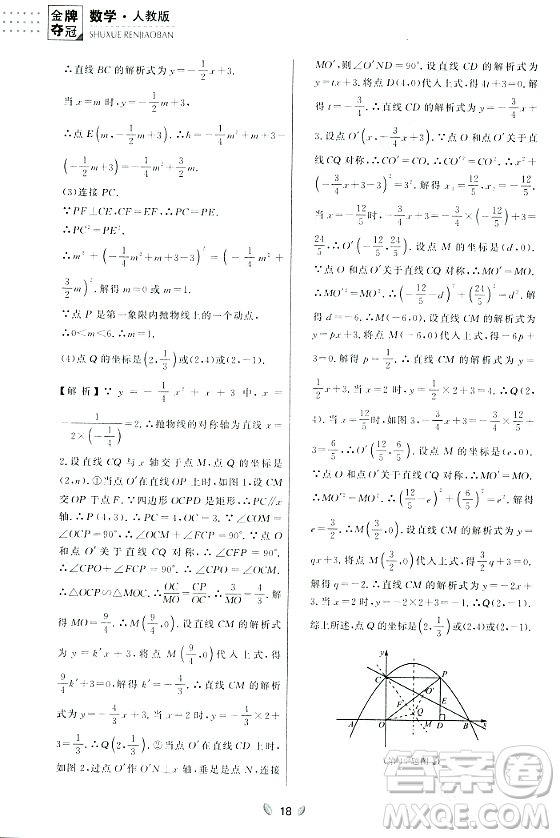 金牌夺冠
数学·人教版
SHUXUE RENJIAOBAN
∴直线 BC 的解析式为 y=-1/2x+3.
当 x=m 时,y=-1/2m+3.
∴点 E(m,-1/2m+3).∴h²=m²+
(-1/2m+3)².
(3)连接 PC.
∵PF⊥CE,PH⊥CO,PF=PH,
∴PC²=PE².
∴m²+(-1/4m²+m+3-3)²=
(-1/4m²+m+3)².解得 m=0 或 m=
∵点 P 是第一象限内抛物线上的一个动点,
∴0<m<6.
(4)点 Q 的坐标是(2,1/3)或(2,4)或(2,
【解析】∵y=-1/4x²+x+3 中,x=
-1/(2×(-1/4))=2.∴抛物线的对称轴为直线 x=
2.设直线 CQ 与 x 轴交于点 M,点 Q 的坐标是
(2,n).①当点 O′在直线 OP 上时,
如图 1.∵四边形 OCPD 是矩形,∴CP∥x
轴.∴P(4,3).∴OC=3.∵∠COM=
∠CPO+∠POC=90°,∠OCM+
∠COP=90°.∴∠CPO=∠OCM.
∴△OCP∽△MOC.∴OC/MO=CP/OC.∴3/MO=4/3.
解得 MO=9/4.∴M(9/4,0).设直线 CM 的解析
式为 y=k′x+3.将点 M(9/4,0)代入上式,得
9/4k′+3=0.解得 k′=-4/3.∴直线 CM 的解析
式为 y=-4/3x+3.当 x=2 时,y=-4/3×2+3=
1/3.∴Q(2,1/3).②当点 O′在直线 CD 上时,
如图 2,过点 O′作 O′N⊥x 轴,垂足为点 N,连接
MO′,则 设直线 CD 的解析式为
y=tx+3.将点 D(4,0)代入上式,得 4t+3=0.解
得 t=-3/4.∴直线 CD 的解析式为 y=-3/4x+
3.设点 O′(x,-3/4x+3).∵点 O 与点 O′关于直
线 CQ 对称,∴CO′=CO.∴CO′²=CO².∴x²+
(-3/4x+3-3)²=3².解得 x₁=12/5,x₂=-12/5.
当 x=-12/5 时,y=-3/4×(-12/5)+3=
24/5.∴O′(-12/5,24/5).设点 M 的坐标是(d,0).
∵点 O 与点 O′关于直线 CQ 对称,∴MO′=MO.
∴MO′²=MO².∴(-12/5-d)²+(24/5)²=d².解得
d=-6.∴M(-6,0).设直线 CM 的解析式为
y=px+3.将点 M(-6,0)代入上式,得-6p+3=
0.解得 p=1/2.∴直线 CM 的解析式为 y=
1/2x+3.当 x=2 时,y=1/2×2+3=4.∴Q(2,
4).当 x=12/5 时,如图 3,y=-3/4×12/5+3=6/5.
∴O′(12/5,6/5).设点 M 的坐标为(e,0).
∵点 O 与点 O′关于直线 CQ 对称,∴MO′=MO.
∴MO′²=MO².∴(12/5-e)²+(6/5)²=e².解得
e=3/2.∴M(3/2,0).设直线 CM 的解析式为 y=
qx+3.将点 M(3/2,0)代入上式,得 3/2q+3=0.
解得 q=-2.∴直线 CM 的解析式为 y=-2x+
3.当 x=2 时,y=-2×2+3=-1.∴Q(2,-1).
综上所述,点 Q 的坐标是(2,1/3)或(2,4)或(2,
-1).
y
C P
O′
F E
Q
A O M D B x
18